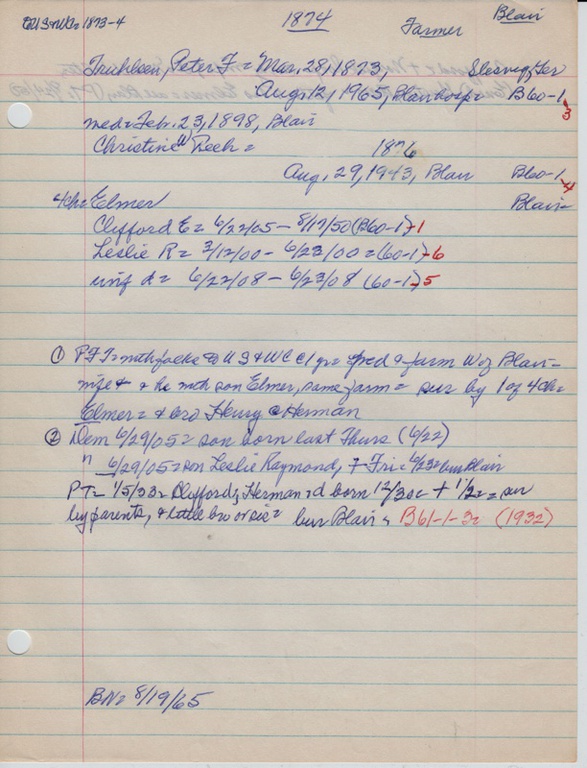 1874
Farmer
Blair
Peter F = Mar. 28, 1873, Slesvig, Ger
Aug. 12, 1965, Blair hosp = B60-1-3
med = Feb. 23, 1898, Blair
Christine W = 1876
Aug, 29, 1943, Blair B60-1-4
4ch = Elmer Blair =
Clifford E = 6/22/05 - 8/17/50 (B60-1)-1
Leslie R = 3/12/00 - 6/23/00 = (60-1)-6
inf d = 6/22/08 - 6/23/08 (60-1)-5
① PFT = farm W of Blair -
son Elmer, same farm = sur by 1 of 4ch =
Elmer = & bro Henry & Herman
② Dem 6/29/05 = son born last Thurs (6/22)
" 6/29/05 = son Leslie Raymond, + Fri = 6/23 = bur Blair
PT = 1/5/33 = Clifford, Herman = d born 12/30 + 1/2 = sur
by parents, & little bro or sis = bur Blair = B61-1-3 = (1932)
BN = 8/19/65